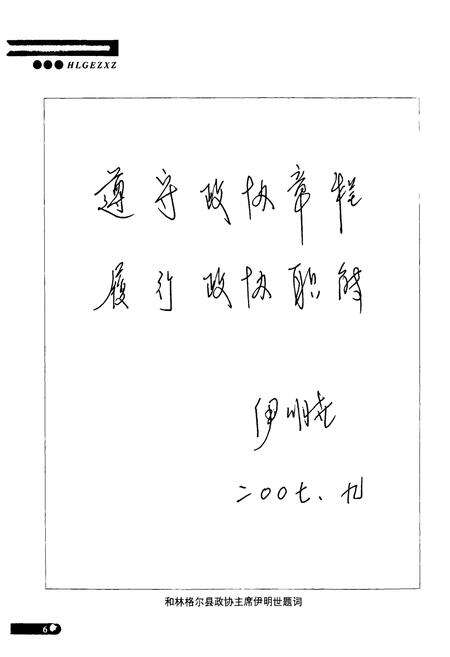 HLGEZXZ
遵守政协章程
履行政协职能
伊明世
二00七、九
和林格尔县政协主席伊明世题词
6